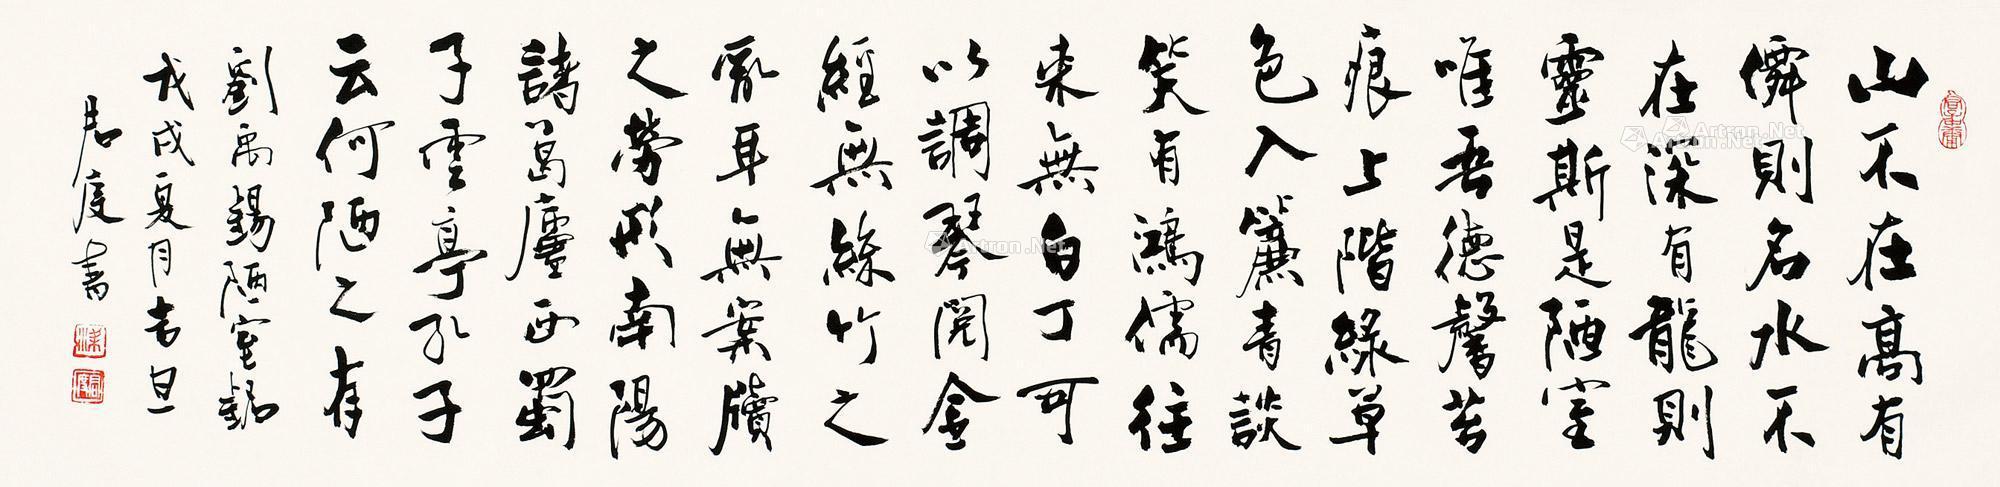 山不在高有
僊則名水不
在深有龍則
靈斯是陋室
唯吾德馨苔
痕上階綠草
色入簾青談
笑有鴻儒往
来無白丁可
以調琴閱金
經無絲竹之
亂耳無案牘
之勞形南陽
諸葛廬西蜀
子雲亭孔子
云何陋之有
劉禹錫陋室銘
戊戌夏月吉旦
君度書
梁
君度
Artron.Net
Artron.Net
Artron.Net